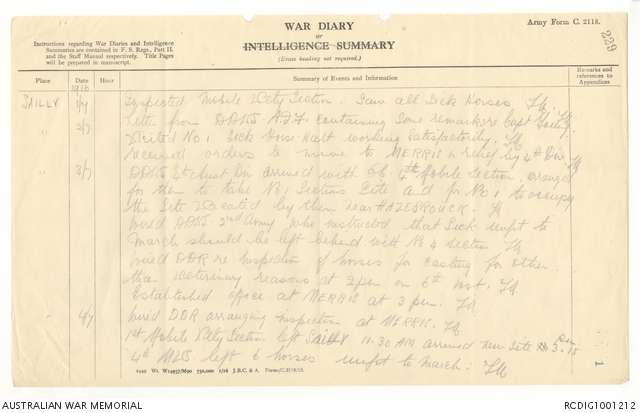 WAR DIARY
or
INTELLIGENCE SUMMARY
(Erase heading not required.)
Army Form C. 2118.
229
Instructions regarding War Diaries and Intelligence
Summaries are contained in F. S. Regs., Part II.
and the Staff Manual respectively. Title Pages
will be prepared in manuscript.
Place Date Hour Summary of Events and Information Remarks and references to Appendices
1916
SAILLY 1/7 Inspected Mobile Vety Section. Saw all Sick Horses
" 2/7 letter from DDVS containing some remarks re Capt
Visited No 1 Sick Horse Halt working satisfactorily.
received orders to move to MERRIS in relief by 4th Div.
3/7 arrived with 4th Mobile Section arranged
for them to take No 1 Sections Site and for No 1 to occupy
the Site Vacated by them near HAZEBROUCK.
wired DDVS 2nd Army who instructed that Sick unfit to
March should be left behind with No 4 Section
wired DDR re Inspection of horses for casting for other
than Veterinary reasons at 2 pm on 6th inst.
Established office at MERRIS at 3 pm.
" 4/7 wired DDR arranging inspection at MERRIS.
1st Mobile Vety Section left SAILLY 11.30 AM arrived new site 3.15 pm
4th MVS left 6 horses unfit to march.
1